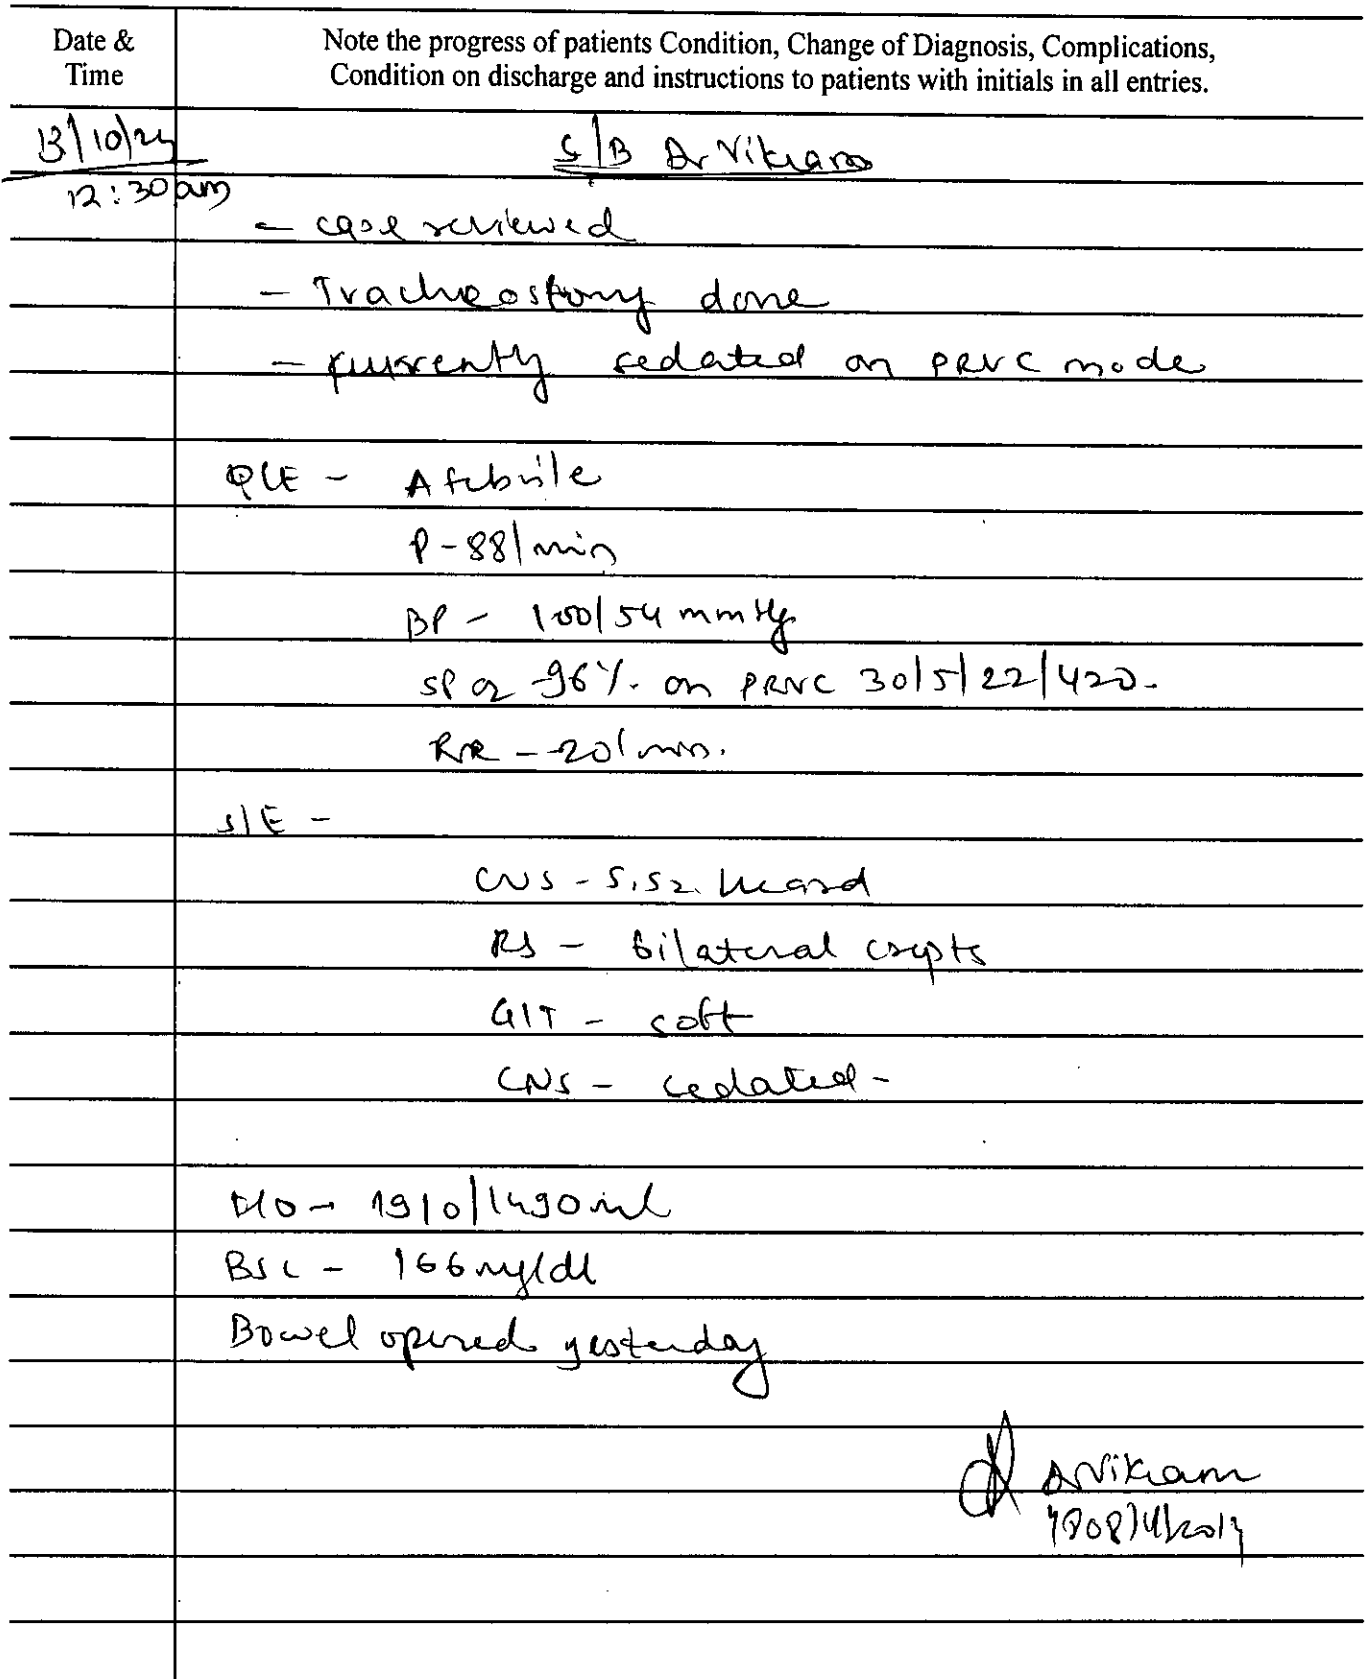 Date & Time
Note the progress of patients Condition, Change of Diagnosis, Complications,
Condition on discharge and instructions to patients with initials in all entries.
13/10/24
12:30am
S/B Dr Vikram
- case reviewed
- Tracheostomy done
- currently sedated on PRVC mode
O/E - Afebrile
P - 88/min
BP - 100/54 mmHg
SPO2 - 96% on PRVC 30/5/22/420.
RR - 20/min.
S/E -
CVS - S1S2 heard
RS - bilateral crepts
GIT - soft
CNS - sedated -
I/O - 1910/1490 ml
BSL - 166 mg/dl
Bowel opened yesterday
Dr Vikram